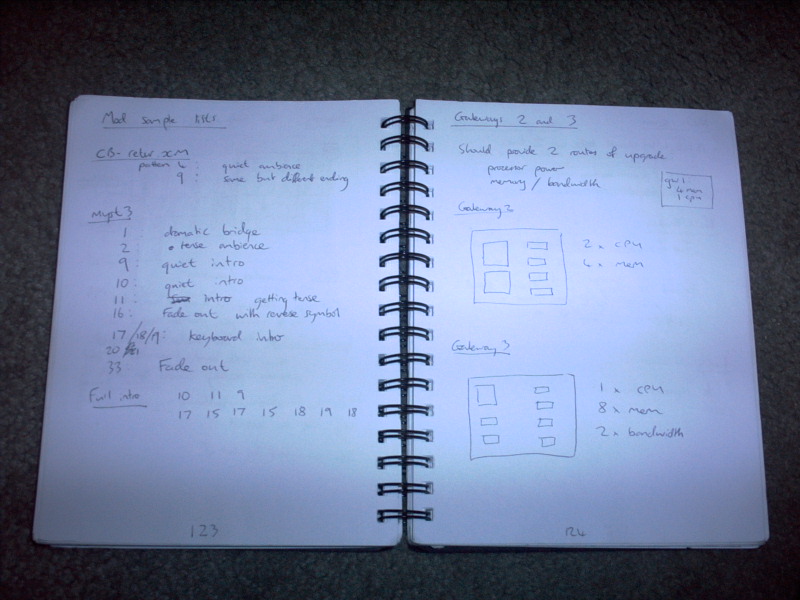 Mod sample
CB- reter XM
pattern 4 : quiet ambience
9 : same but different ending
Myst 3
1 dramatic bridge
2 tense ambience
9 quiet intro
10 : quiet intro
11 : intro getting tense
16 : Fade out with reverse symbol
17/18/19: keyboard intro
20
33 : Fade out
Full intro 10 11 9
17 15 17 15 18 19 18
123
Gateways 2 and 3
Should provide 2 routes of upgrade
processor power
memory / bandwidth
gw 1
4 mem
1 cpu
Gateway 2
2 x cpu
4 x mem
Gateway 3
1 x cpu
8 x mem
2 x bandwidth
124